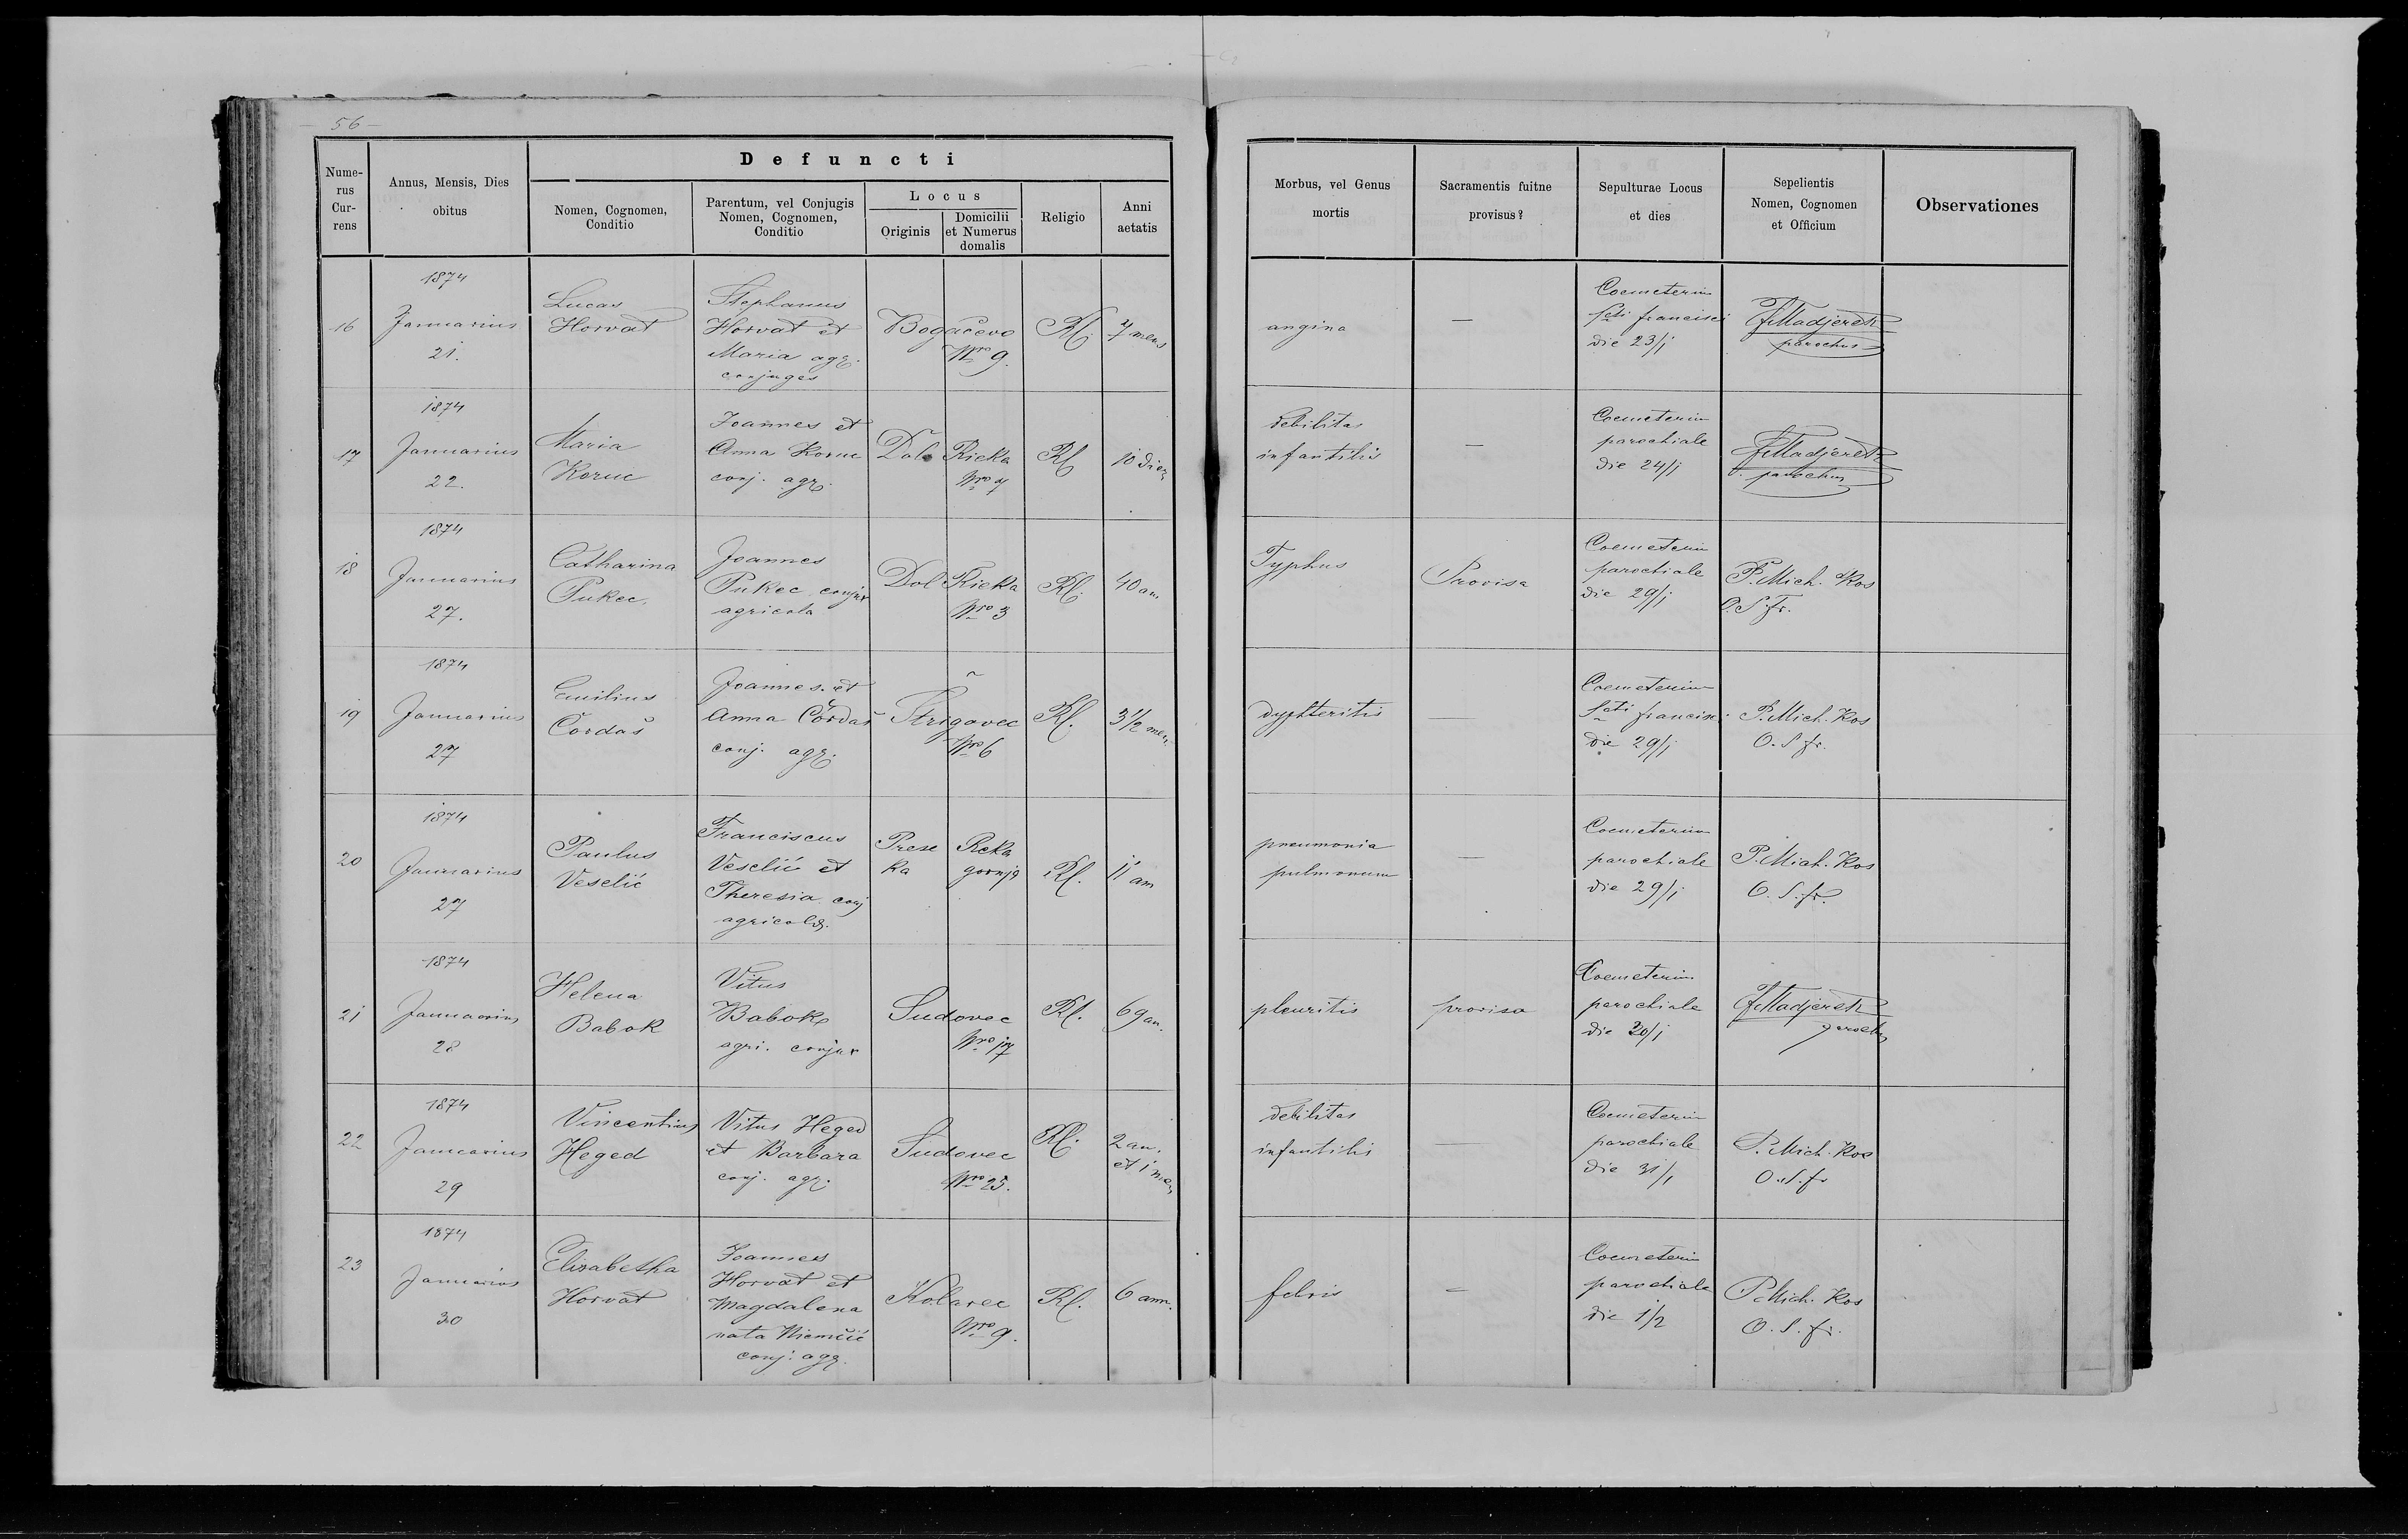 56
Defuncti
Nume-
rus
Cur-
rens
Annus, Mensis, Dies
obitus
Nomen, Cognomen,
Conditio
Parentum, vel Conjugis
Nomen, Cognomen,
Conditio
Locus
Originis
Domicilii
et Numerus
domalis
Religio
Anni
aetatis
Morbus, vel Genus
mortis
Sacramentis fuitne
provisus?
Sepulturae Locus
et dies
Sepelientis
Nomen, Cognomen
et Officium
Observationes
16
1874
Januarius
21.
Lucas
Horvat
Stephanus
Horvat et
Maria agr.
conjuges
Bogačevo
Nro 9.
Rk.
7 mens
angina
—
Coemeterium
Scti francisci
die 23/1
F. Madjerek
parochus
17
1874
Januarius
22.
Maria
Koruc
Joannes et
Anna Koruc
conj. agr.
Dol Rieka
Nro 7
Rk
10 dier
debilitas
infantilis
—
Coemeterium
parochiale
die 24/1
F. Madjerek
parochus
18
1874
Januarius
27.
Catharina
Pukec
Joannes
Pukec conjux
agricola
Dol Rieka
Nro 3
Rk.
40 an
Typhus
Provisa
Coemeterium
parochiale
die 29/1
P. Mich. Kos
O. S. Fr.
19
1874
Januarius
27
Emilius
Čordaš
Joannes et
Anna Čordaš
conj. agr.
Štrigovec
Nro 6
Rk.
3 1/2 men
dyphteritis
—
Coemeterium
Scti francisci
die 29/1
P. Mich. Kos
O. S. fr.
20
1874
Januarius
27
Paulus
Veselić
Franciscus
Veselić et
Theresia conj
agricolae
Prese
ka
Reka
gornja
Rk.
11 an
pneumonia
pulmonum
—
Coemeterium
parochiale
die 29/1
P. Mich. Kos
O. S. fr.
21
1874
Januarius
28
Helena
Babok
Vitus
Babok
agri. conjux
Sudovec
Nro 17
Rk.
69 an.
pleuritis
provisa
Coemeterium
parochiale
die 30/1
F. Madjerek
parochus
22
1874
Januarius
29
Vincentius
Heged
Vitus Heged
et Barbara
conj. agr.
Sudovec
Nro 25.
Rk.
2 an.
et 1 men
debilitas
infantilis
—
Coemeterium
parochiale
die 31/1
P. Mich. Kos
O. S. fr
23
1874
Januarius
30
Elisabetha
Horvat
Joannes
Horvat et
Magdalena
nata Niemčić
conj. agr.
Kolarec
Nro 9.
Rk.
6 ann.
febris
—
Coemeterium
parochiale
die 1/2
P. Mich. Kos
O. S. fr.